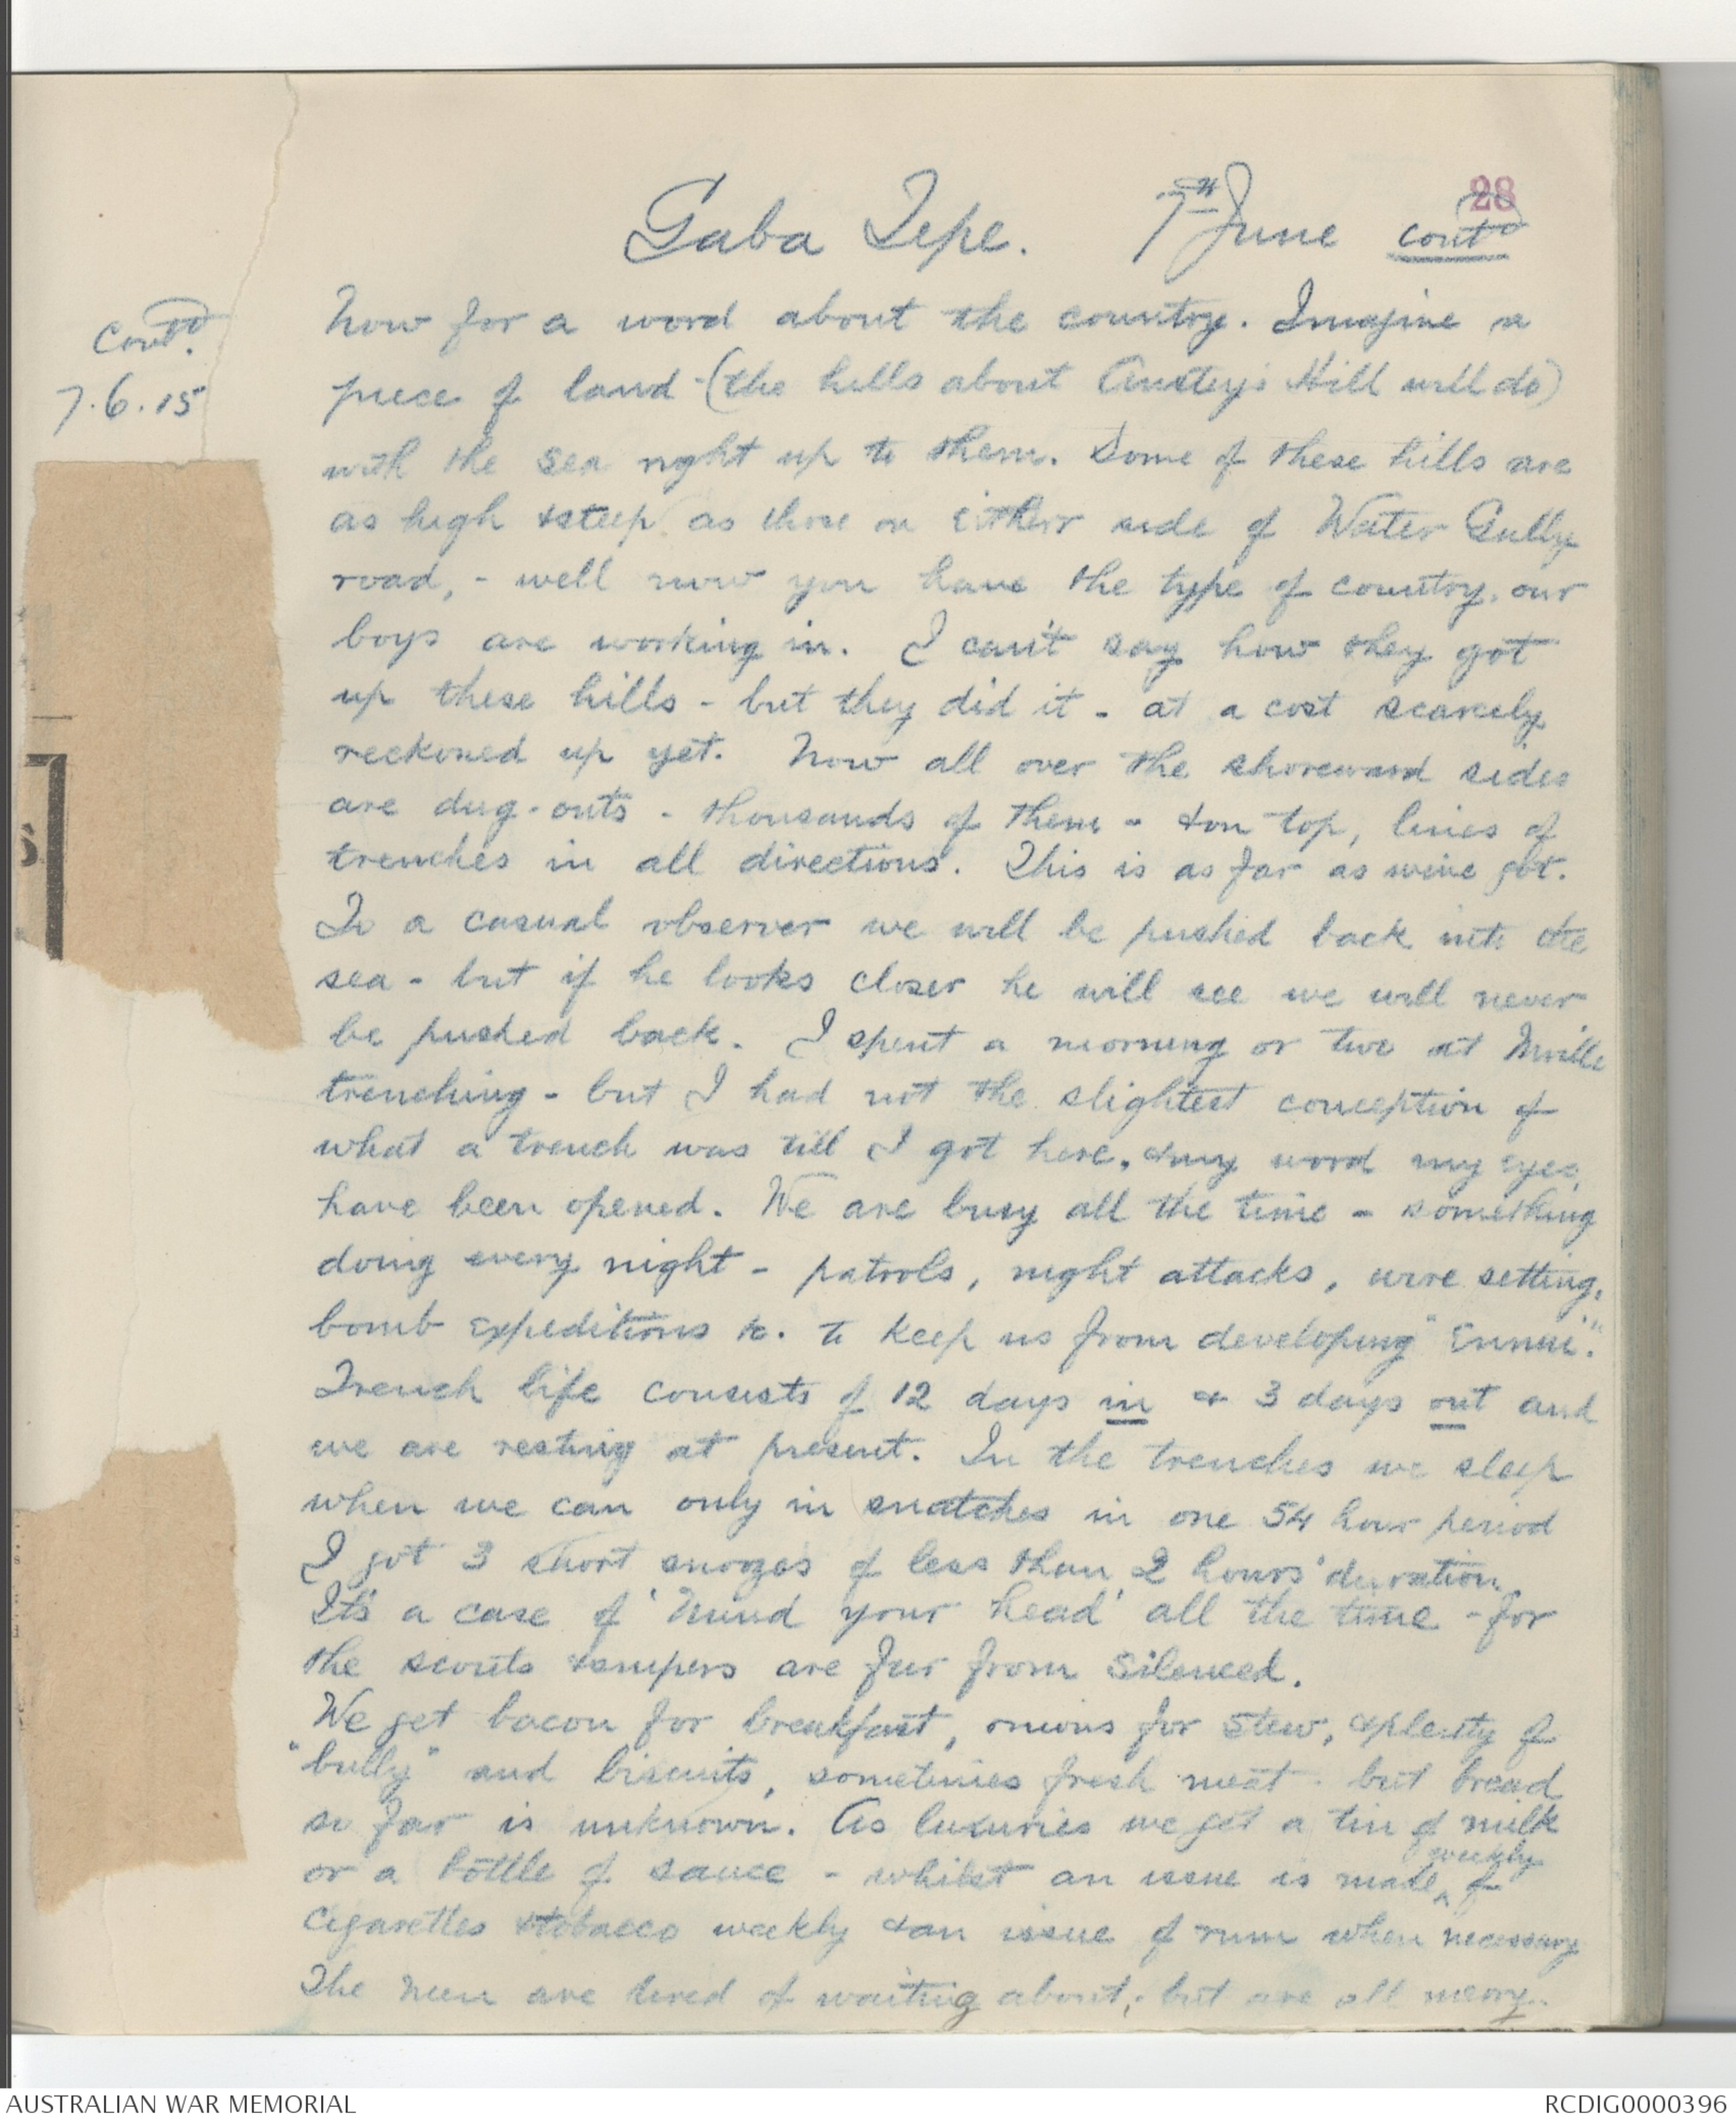 28
Gaba Tepe. 7th June contd
Contd.
7.6.15
Now for a word about the country. Imagine a
piece of land - (the hills about Anstey's Hill will do)
with the sea right up to them. Some of these hills are
as high & steep as those on either side of Water Gully
road, - well now you have the type of country our
boys are working in. I can't say how they got
up these hills - but they did it - at a cost scarcely
reckoned up yet. Now all over the shoreward sides
are dug-outs - thousands of them - & on top, lines of
trenches in all directions. This is as far as we've got.
To a casual observer we will be pushed back into the
sea - but if he looks closer he will see we will never
be pushed back. I spent a morning or two at
trenching - but I had not the slightest conception of
what a trench was till I got here, & my word my eyes
have been opened. We are busy all the time - something
doing every night - patrols, night attacks, wire setting,
bomb expeditions &c. to keep us from developing "Ennui".
Trench life consists of 12 days in & 3 days out and
we are resting at present. In the trenches we sleep
when we can only in snatches in one 54 hour period
I got 3 short snoozes of less than 2 hours' duration.
It's a case of 'Mind your head' all the time - for
the scouts & snipers are far from silenced.
We get bacon for breakfast, onions for stew, & plenty of
"bully" and biscuits, sometimes fresh meat - but bread
so far is unknown. As luxuries we get a tin of milk
or a bottle of sauce - whilst an issue is made weekly of
cigarettes & tobacco weekly & an issue of rum when necessary
The men are tired of waiting about, but are all merry.
AUSTRALIAN WAR MEMORIAL
RCDIG0000396